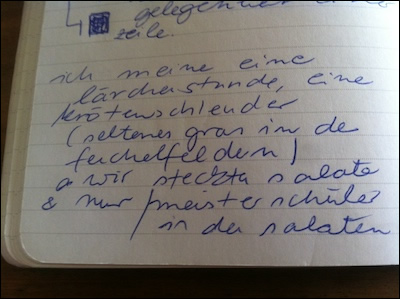 gelegenheit eine
zeile.
ich meine eine
lärchenstunde, eine
krötenschleuder
(seltenes gras in de
feichelfeldern)
wir steckten salate
& nur meisterschüler
in den salaten